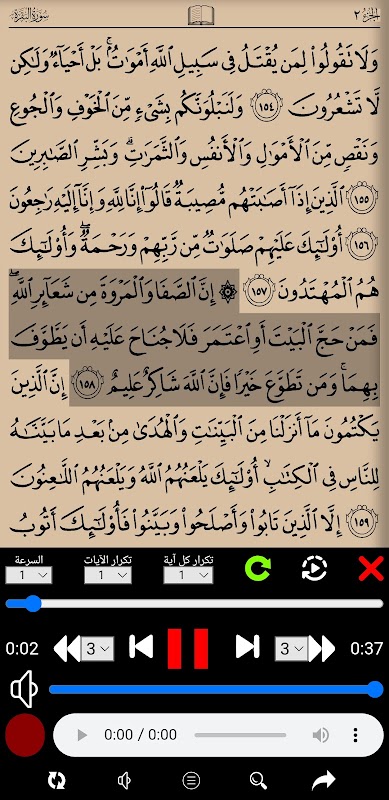 الجزء ٢
سورة البقرة
وَلَا تَقُولُوا۟ لِمَن يُقْتَلُ فِى سَبِيلِ ٱللَّهِ أَمْوَٰتٌۢ ۚ بَلْ أَحْيَآءٌ وَلَٰكِن
لَّا تَشْعُرُونَ ١٥٤ وَلَنَبْلُوَنَّكُم بِشَىْءٍ مِّنَ ٱلْخَوْفِ وَٱلْجُوعِ
وَنَقْصٍ مِّنَ ٱلْأَمْوَٰلِ وَٱلْأَنفُسِ وَٱلثَّمَرَٰتِ ۗ وَبَشِّرِ ٱلصَّٰبِرِينَ
١٥٥ ٱلَّذِينَ إِذَآ أَصَٰبَتْهُم مُّصِيبَةٌ قَالُوٓا۟ إِنَّا لِلَّهِ وَإِنَّآ إِلَيْهِ رَٰجِعُونَ
١٥٦ أُو۟لَٰٓئِكَ عَلَيْهِمْ صَلَوَٰتٌ مِّن رَّبِّهِمْ وَرَحْمَةٌ ۖ وَأُو۟لَٰٓئِكَ
هُمُ ٱلْمُهْتَدُونَ ١٥٧ ۞ إِنَّ ٱلصَّفَا وَٱلْمَرْوَةَ مِن شَعَآئِرِ ٱللَّهِ ۖ
فَمَنْ حَجَّ ٱلْبَيْتَ أَوِ ٱعْتَمَرَ فَلَا جُنَاحَ عَلَيْهِ أَن يَطَّوَّفَ
بِهِمَا ۚ وَمَن تَطَوَّعَ خَيْرًا فَإِنَّ ٱللَّهَ شَاكِرٌ عَلِيمٌ ١٥٨ إِنَّ ٱلَّذِينَ
يَكْتُمُونَ مَآ أَنزَلْنَا مِنَ ٱلْبَيِّنَٰتِ وَٱلْهُدَىٰ مِنۢ بَعْدِ مَا بَيَّنَّٰهُ
لِلنَّاسِ فِى ٱلْكِتَٰبِ ۙ أُو۟لَٰٓئِكَ يَلْعَنُهُمُ ٱللَّهُ وَيَلْعَنُهُمُ ٱللَّٰعِنُونَ
١٥٩ إِلَّا ٱلَّذِينَ تَابُوا۟ وَأَصْلَحُوا۟ وَبَيَّنُوا۟ فَأُو۟لَٰٓئِكَ أَتُوبُ
تكرار كل آية تكرار الآيات السرعة
1 1 1
0:02 3 3 0:37
0:00 / 0:00